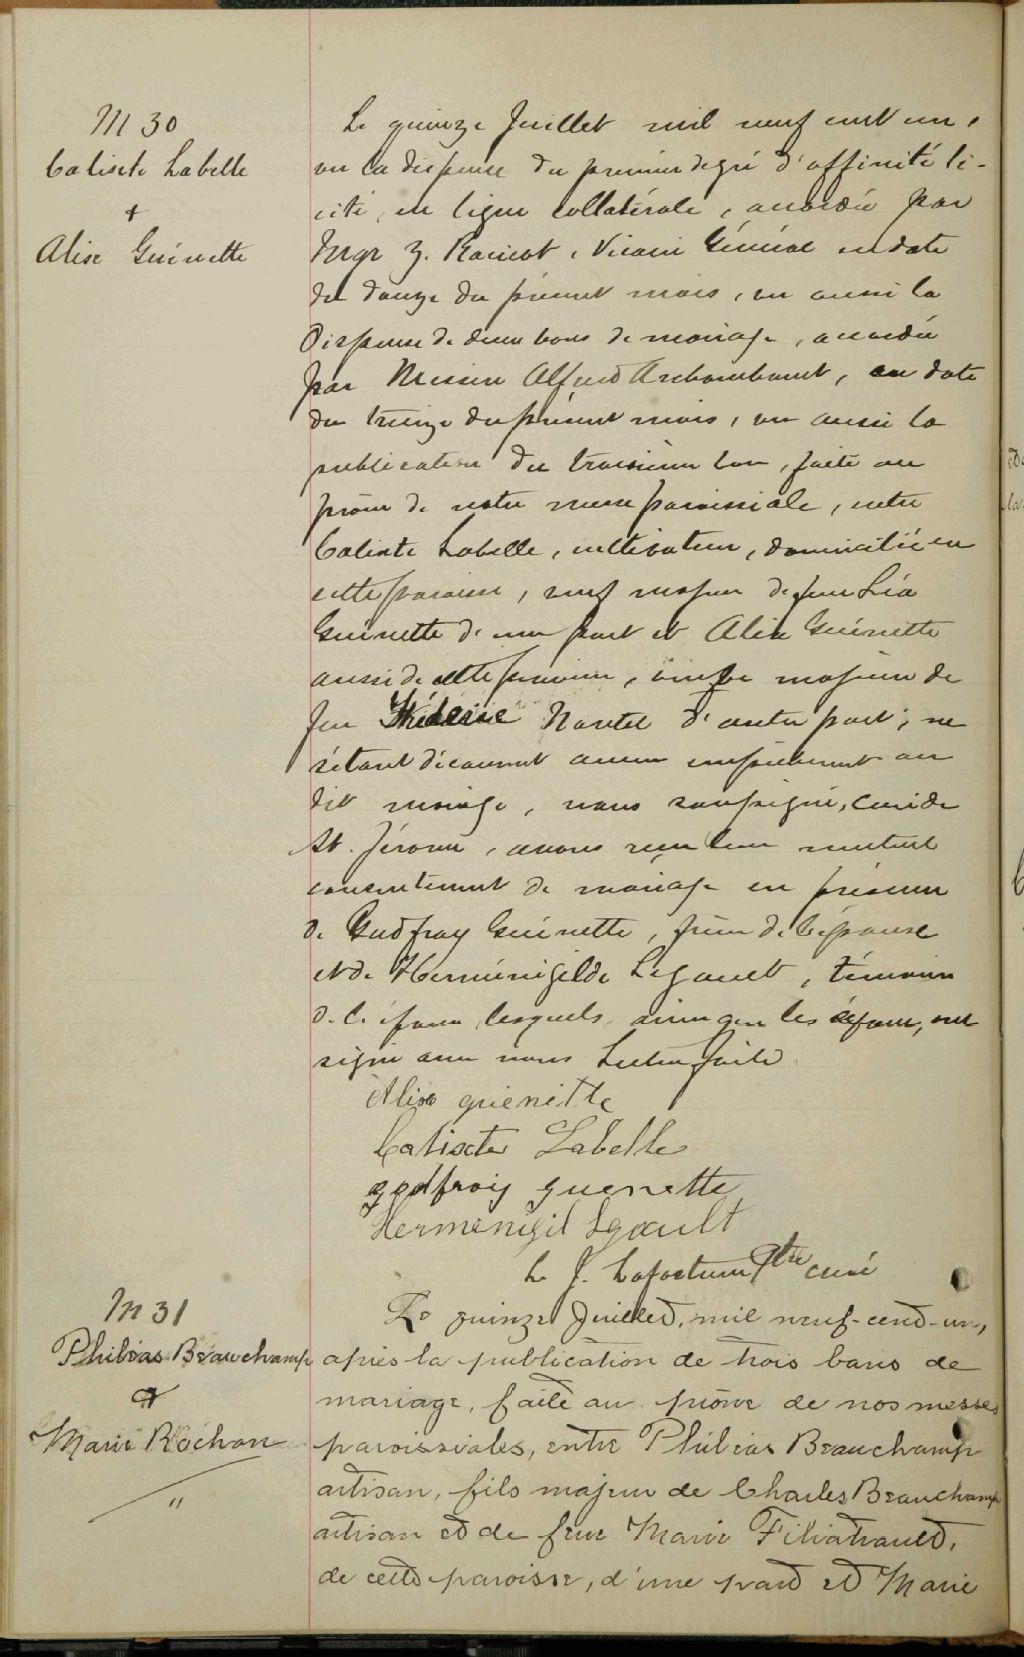 M 30
Calixte Labelle
+
Alise Guénette
Le quinze Juillet mil neuf cent un,
vu la dispense du premier degré d'affinité li-
cite, en ligne collatérale, accordée par
Mgr Z. Racicot, Vicaire Général en date
du douze du présent mois, vu aussi la
Dispense de deux bans de mariage, accordée
par Messire Alfred Archambault, en date
du treize du présent mois, vu aussi la
publication du troisième ban, faite au
prône de notre messe paroissiale, entre
Calixte Labelle, cultivateur, domicilié en
cette paroisse, veuf majeur de feue Léa
Guénette d'une part et Alise Guénette
aussi de cette paroisse, veuve majeure de
feu Nantel d'autre part; ne
s'étant découvert aucun empêchement au
dit mariage, nous soussigné, curé de
St. Jérôme, avons reçu leur mutuel
consentement de mariage en présence
de Godfroy Guénette, frère de l'épouse
et de Herménégilde Legault, témoin
de l'époux lesquels, ainsi que les époux, ont
signé avec nous Lecture faite
Alise guenette
Calixte Labelle
godfroiy guenette
Hermenegil Lgault
L. J. Lafortune Ptre curé
M 31
Philéas Beauchamp
&
Marie Rochon
"
Le quinze Juillet, mil neuf-cent-un,
après la publication de trois bans de
mariage, faite au prône de nos messes
paroissiales, entre Philéas Beauchamp
artisan, fils majeur de Charles Beauchamp
artisan et de feue Marie Filiatrault,
de cette paroisse, d'une part et Marie